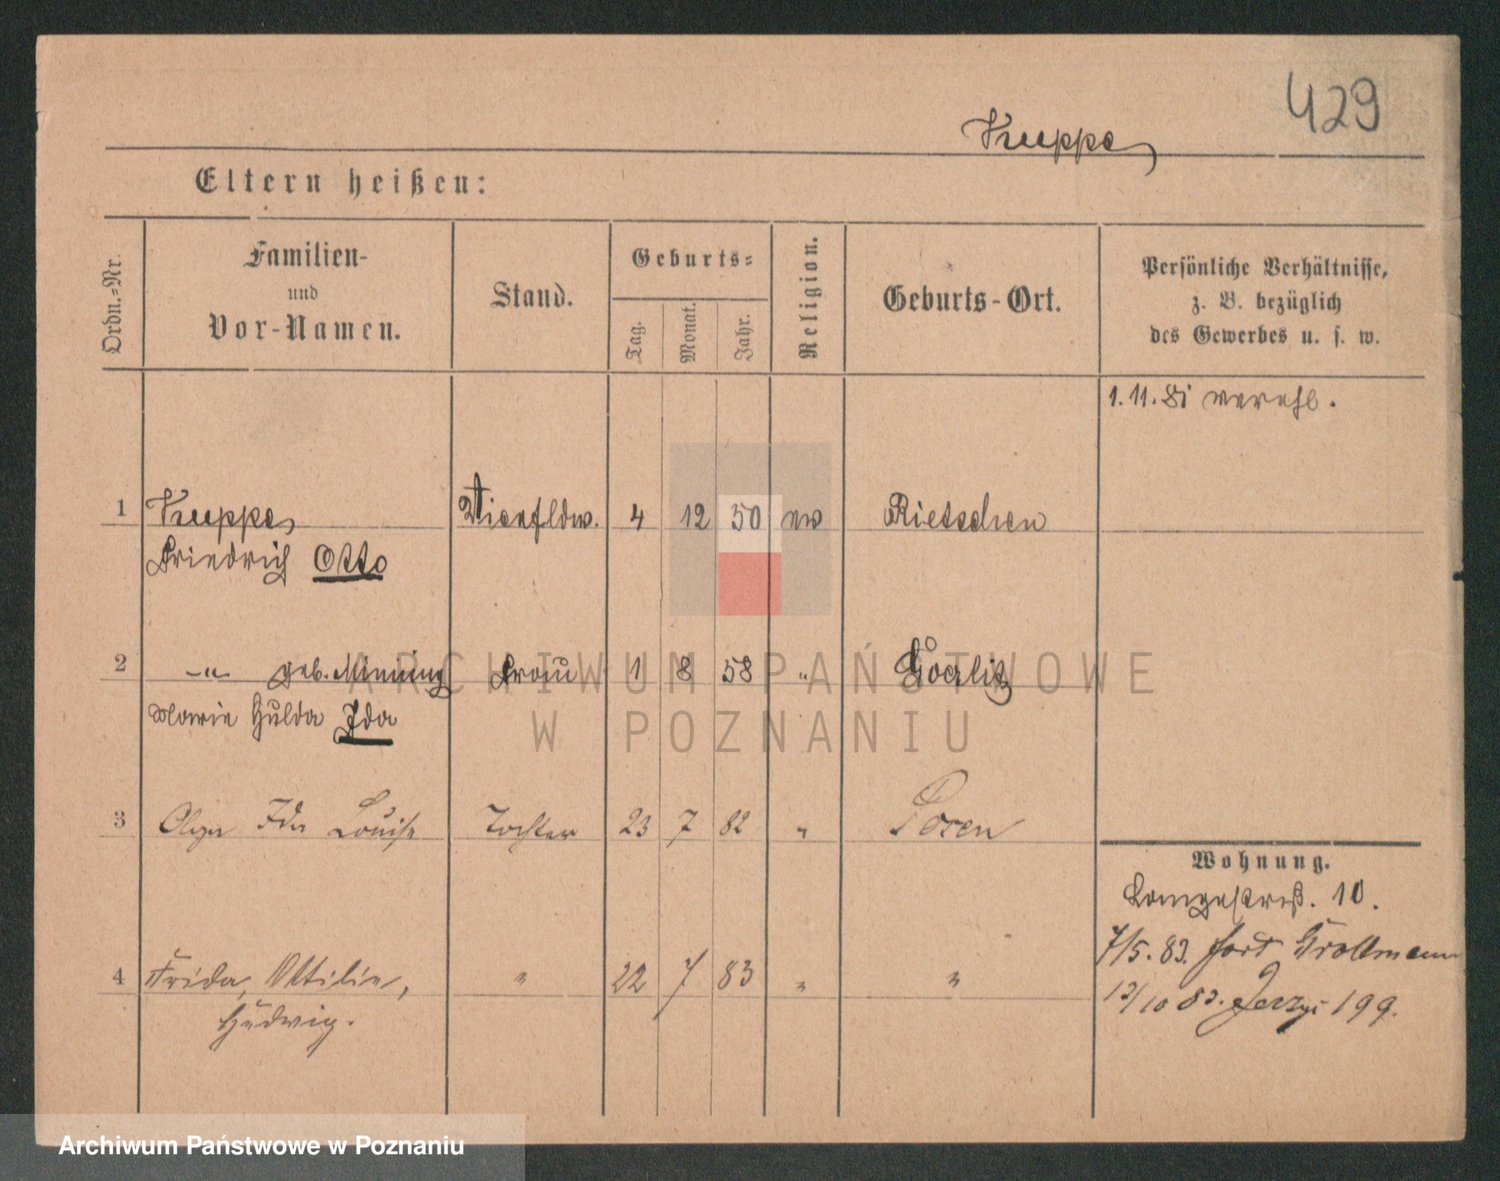 429
Kuppe
Eltern heißen:
Ordn.-Nr.
Familien-
und
Vor-Namen.
Stand.
Geburts-
Tag.
Monat.
Jahr.
Religion.
Geburts-Ort.
Persönliche Verhältnisse,
z. B. bezüglich
des Gewerbes u. s. w.
1.11.81 verehl.
1 Kuppe 4 12 50 ev Rietschen
Friedrich Otto
2 -"- geb. Minning Frau 1 8 58 " Goerlitz
Marie Hulda Ida
3 Olga Ida Louise Tochter 23 7 82 " Posen
Wohnung.
Langestrß. 10.
7/5. 83. Fort Grollmann
4 Frida, Ottilie, " 22 7 83 " "
12/10 83. Jerzyi 199.
Hedwig.
ARCHIWUM PAŃSTWOWE
W POZNANIU
Archiwum Państwowe w Poznaniu